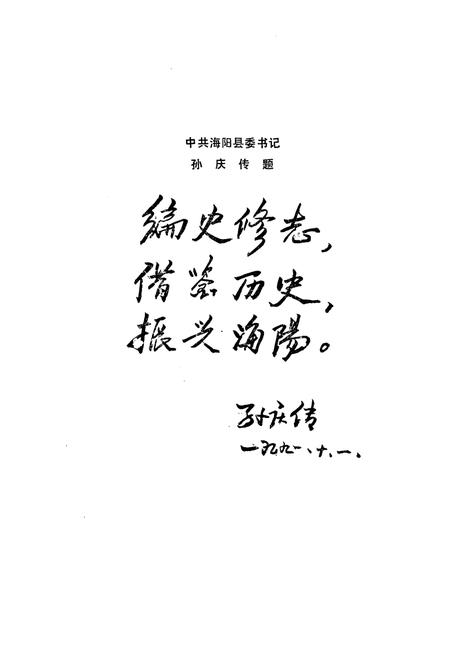 中共海阳县委书记
孙庆传题
编史修志，
借鉴历史，
振兴海陽。
孙庆传
一九九一、十、一。